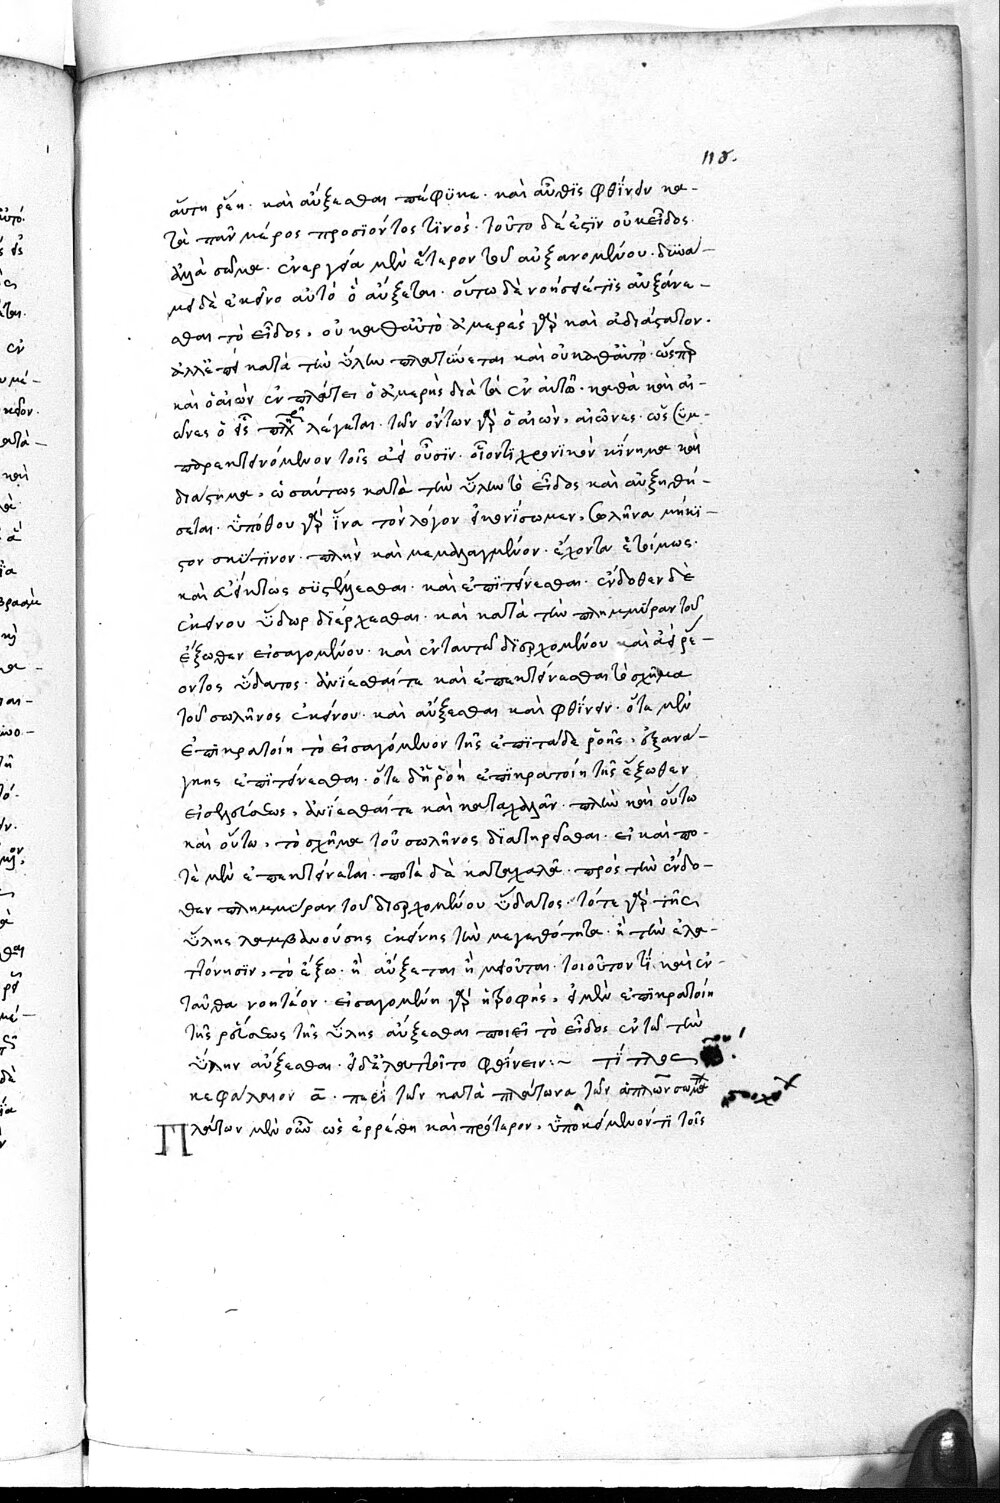 118.
αὕτη ῥέῃ. καὶ αὔξεσθαι πέφϋκε. καὶ αὖθϊς φθίνειν κα-
τὰ πᾶν μέρος προσϊόντος τϊνός. τοῦτο δέ ἐςϊν οὐκ εἶδος
ἀλλὰ σῶμα. ἐνεργείᾳ μὲν ἕτερον τοῦ αὐξανομένου. δυνά-
μει δὲ ἐκεῖνο αὐτό ὃ αὔξεται. οὕτω δὲ νοήσειέ τϊς αὐξάνε-
σθαι τὸ εἶδος, οὐ καθαὑτὸ ἀμερὲς γὰρ καὶ ἀδιάςατον.
ἀλλ' ἐπεὶ κατὰ τὴν ὕλην πλατύνεται καὶ οὐ καθαὑτό. ὥσπερ
καὶ ὁ αἰὼν ἐν πλάτει ὁ ἀμερὴς διὰ τὰ ἐν αὐτῷ. καθὰ καὶ αἰ-
ῶνες ὁ εἷς λέγεται. τῶν ὄντων γὰρ ὁ αἰὼν, αἰῶνες. ὡς συμ-
παρεκτεινόμενον τοῖς ἀεὶ οὖσιν. οἷόν τι χρονϊκὸν κίνημα καὶ
διάςημα, ὡσαύτως κατὰ τὴν ὕλην τὸ εἶδος καὶ αὐξηθή-
σεται. ὑπόθου γὰρ ἵνα τὸν λόγον εἰκονίσωμεν, σωλῆνα μήκι-
ςον σκύτϊνον. πλὴν καὶ μεμαλαγμένον. ἔχοντα ἑτοίμως.
καὶ συςέλλεσθαι. καὶ ἐπιτείνεσθαι. ἔνδοθεν δὲ
ἐκείνου ὕδωρ διέρχεσθαι. καὶ κατὰ τὴν πλημμύραν τοῦ
ἔξωθεν εἰσαγομένου. καὶ ἐνταυτῶ διερχομένου καὶ ἀεὶ ῥέ-
οντος ὕδατος. ἀνίεσθαί τε καὶ ἐπεκτείνεσθαι τὸ σχῆμα
τοῦ σωλῆνος ἐκείνου. καὶ αὔξεσθαι καὶ φθίνειν. ὅτε μὲν
ἐπικρατοίη τὸ εἰσαγόμενον τῆς ἐπὶ τάδε ῥοῆς, ἐξανά-
γκης ἐπιτείνεσθαι. ὅτε δ' ἡ ῥοὴ ἐπικρατοίη τῆς ἔξωθεν
ἀνίεσθαί τε καὶ καταχαλᾶν. πλὴν καὶ οὕτω
καὶ οὕτω, τὸ σχῆμα τοῦ σωλῆνος διατηρεῖσθαι. εἰ καὶ πο-
τὲ μὲν ἐπεκτείνεται. ποτὲ δὲ καταχαλᾶ. πρὸς τὴν ἔνδο-
θεν πλημμύραν τοῦ διερχομένου ὕδατος. τότε γὰρ τῆς
ὕλης λαμβανούσης ἐκείνης τὴν μεγεθότητα. ἢ τὴν ἐλα-
ττόνησϊν, τὸ ἔξω. ἢ αὔξεται ἢ μειοῦται. τοιοῦτον τί καὶ ἐν-
ταῦθα νοητέον. εἰσαγομένη γὰρ ἡ τροφὴ, εἰ μὲν ἐπικρατοίη
τῆς ῥεύσεως τῆς ὕλης αὔξεσθαι ποιεῖ τὸ εἶδος ἐν τῶ τὴν
ὕλην αὔξεσθαι. εἰ δ' ἐλαττοῖτο φθίνειν :~
κεφάλαιον α. περὶ τῶν κατὰ πλάτωνα τῶν ἁπλῶν σωμάτ
Πλάτων μὲν οὖν ὡς ἐρρέθη καὶ πρότερον, ὑποκείμενόν τι τοῖς